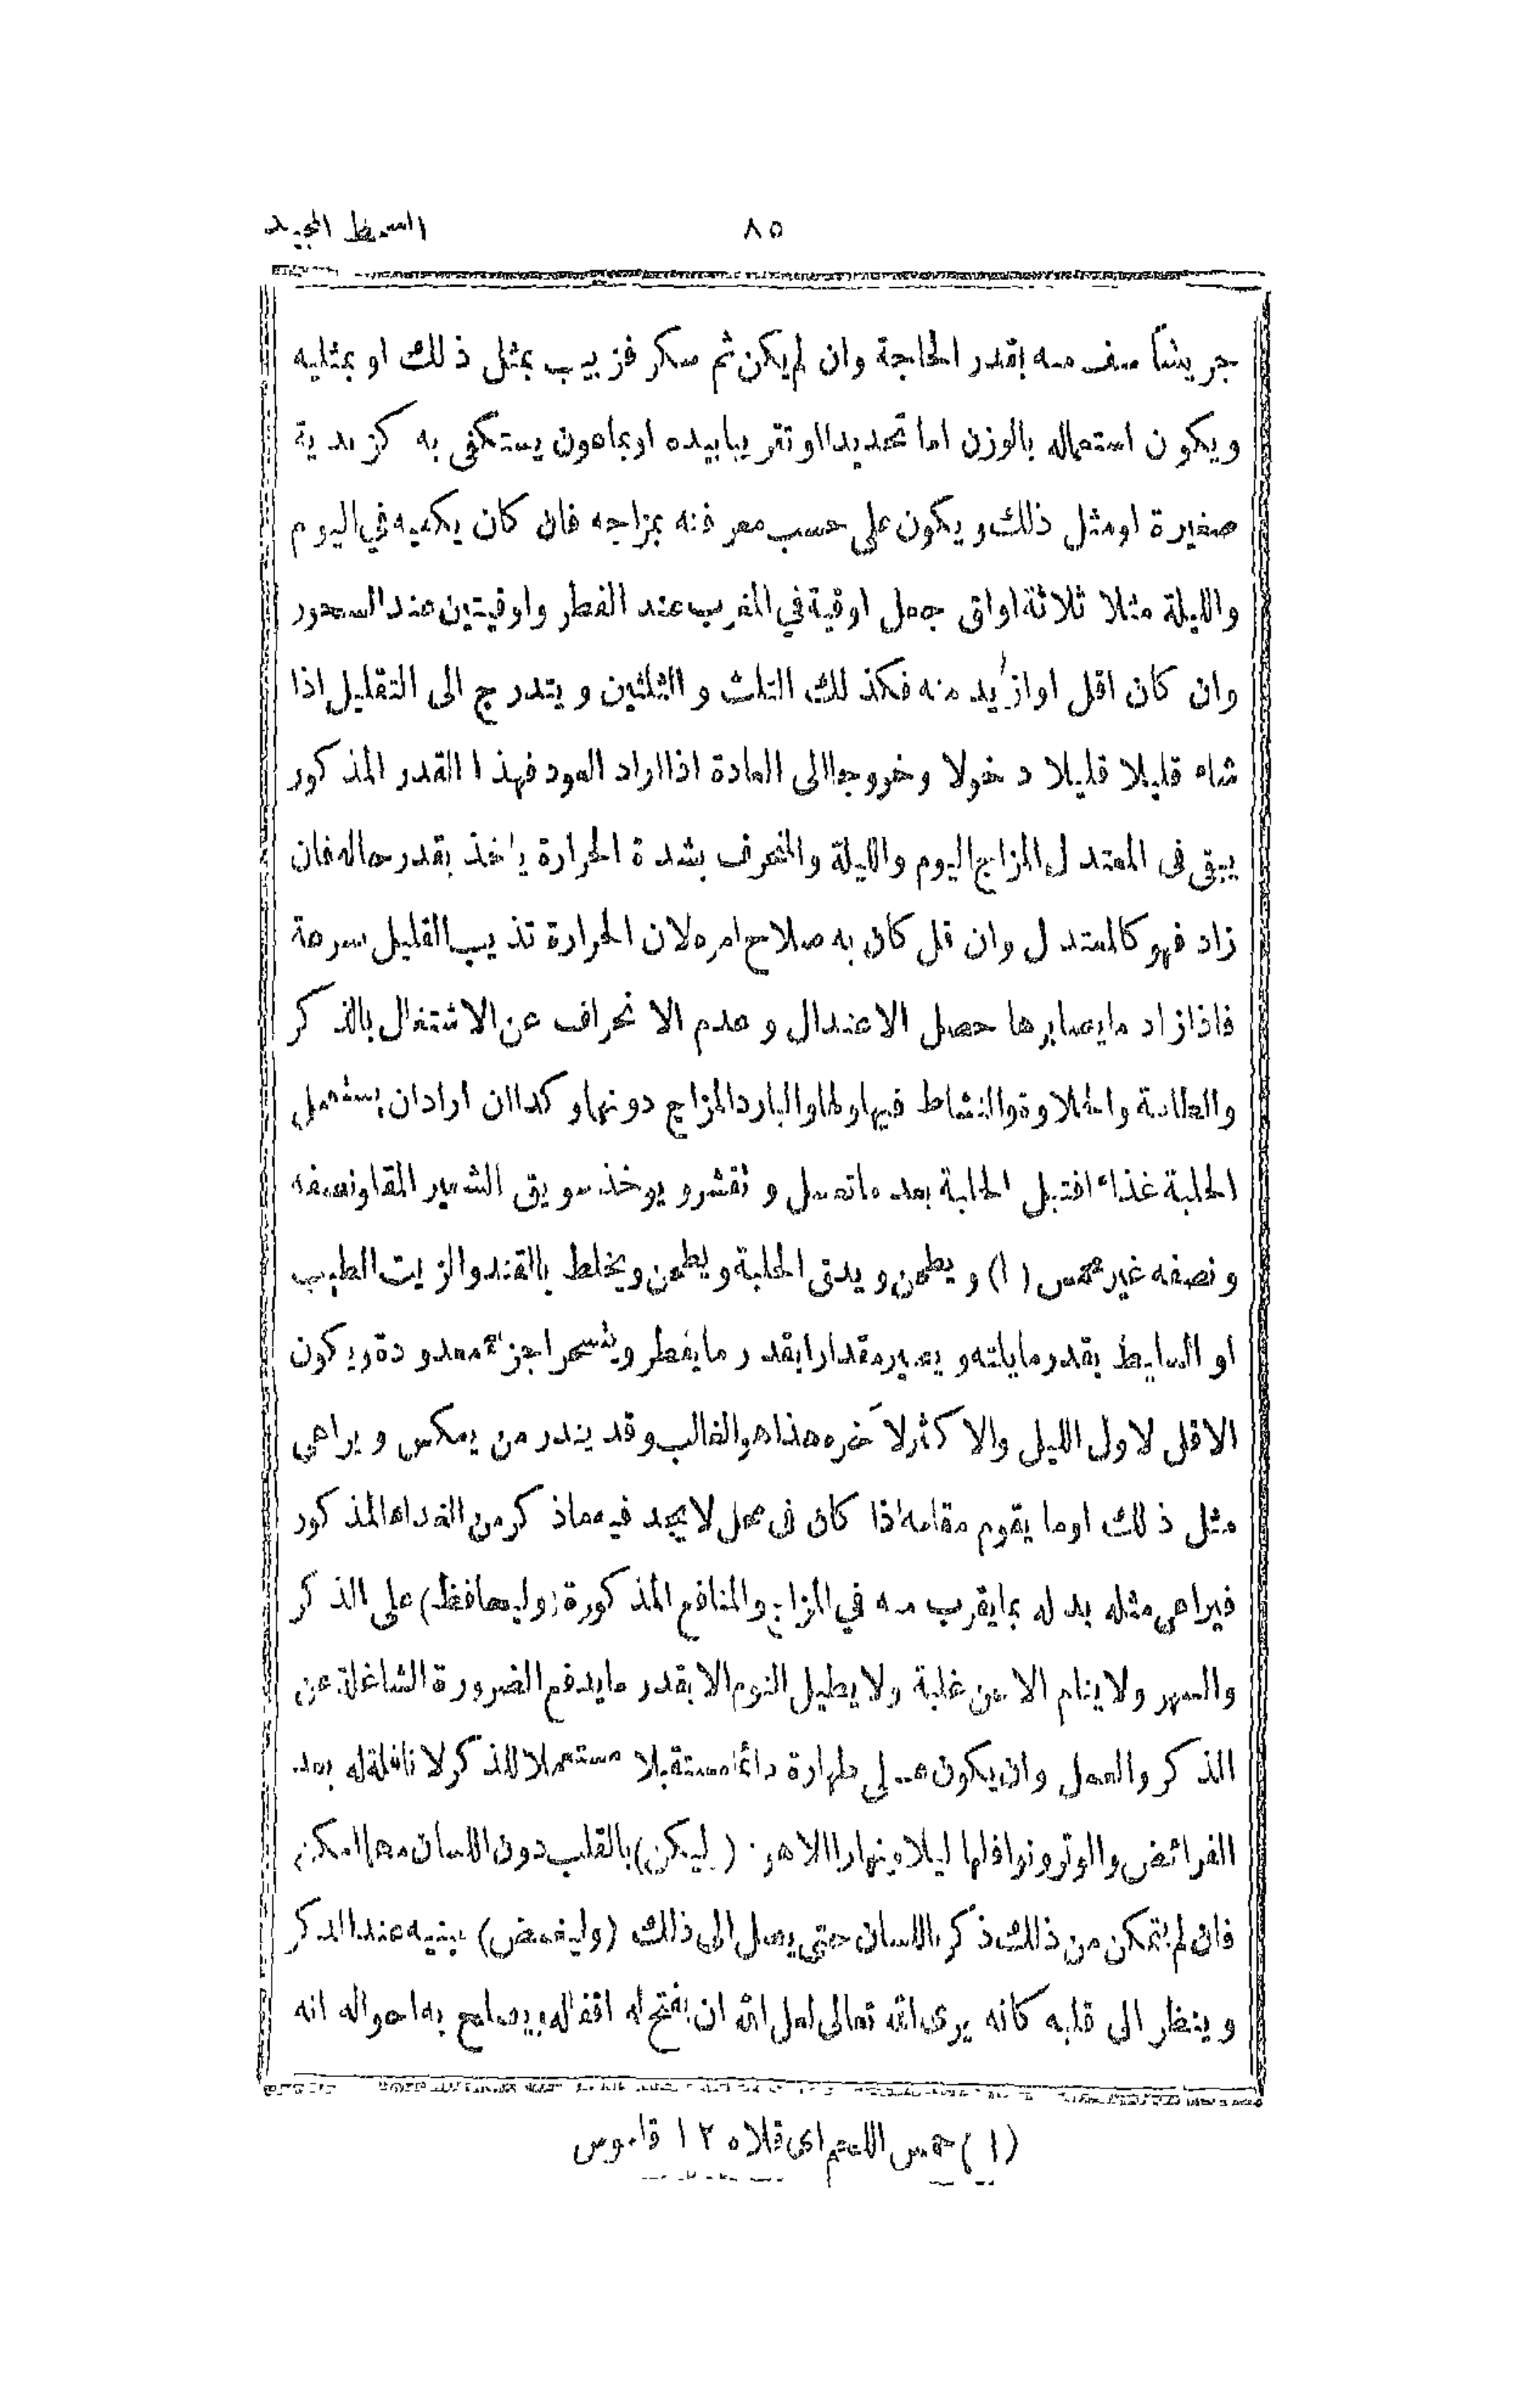 السمط المجيد
٨٥
جريشاً سف منه بقدر الحاجة وان لم يكن ثم سكر فزبيب بمثل ذلك او بمثليه
ويكون استعماله بالوزن اما تحديدا او تقريبا بيده او بماهون يستكفى به كزبدية
صغيرة او مثل ذلك ويكون على حسب معرفته بمزاجه فان كان يكفيه في اليوم
والليلة مثلا ثلاثة اواق جعل اوقية في المغرب عند الفطر واوقيتين عند السحور
وان كان اقل او ازيد منه فكذلك الثلث والثلثين ويتدرج الى التقليل اذا
شاء قليلا قليلا دخولا وخروجا الى العادة اذا اراد العود فهذا القدر المذكور
يبقى فى المعتدل المزاج اليوم والليلة والمنحرف بشدة الحرارة ياخذ بقدر حاله فان
زاد فهو كالمعتدل وان قل كان به صلاح امره لان الحرارة تذيب القليل سرعة
فاذا زاد ما يصابرها حصل الاعتدال وعدم الانحراف عن الاشتغال بالذكر
والحلاوة والنشاط فيها ولها والبارد المزاج دونها وكذا ان اراد ان يستعمل
الحلبة غذاء افتبل الحلبة بعد ما تغسل و تقشر و يوخذ سويق الشعير المقاو نصفه
و نصفه غير محمس (١) و يطحن و يدق الحلبة و يطحن ويخلط بالقند والزيت الطيب
او السليط بقدر ما يلته و يصير مقدارا بقدر ما يفطر ويتسحر اجزاء معدودة ويكون
الاقل لاول الليل والاكثر لآخره هذا هو الغالب وقد يندر من يعكس و يراعى
مثل ذلك او ما يقوم مقامه اذا كان فى محل لا يجد فيه ما ذكر من الغداء المذكور
فيراعى مثله بدله بما يقرب منه في المزاج والمنافع المذكورة (وليحافظ) على الذكر
والسهر ولا ينام الا عن غلبة ولا يطيل النوم الا بقدر ما يدفع الضرورة الشاغلة عن
الذكر والعمل وان يكون على طهارة دائما مستقبلا مستعملا للذكر لا نافلة له بعد
الفرائض والوتر ونوافلها ليلا ونهارا الا هو (ليكن) بالقلب دون اللسان مهما امكن
فان لم يتمكن من ذلك ذكر باللسان حتى يصل الى ذلك (وليغمض) عينيه عند الذكر
و ينظر الى قلبه كانه يرى الله تعالى لعل الله ان يفتح له اقفاله ويصلح به احواله انه
(١) حمس اللحم اى قلاه ١٢ قاموس